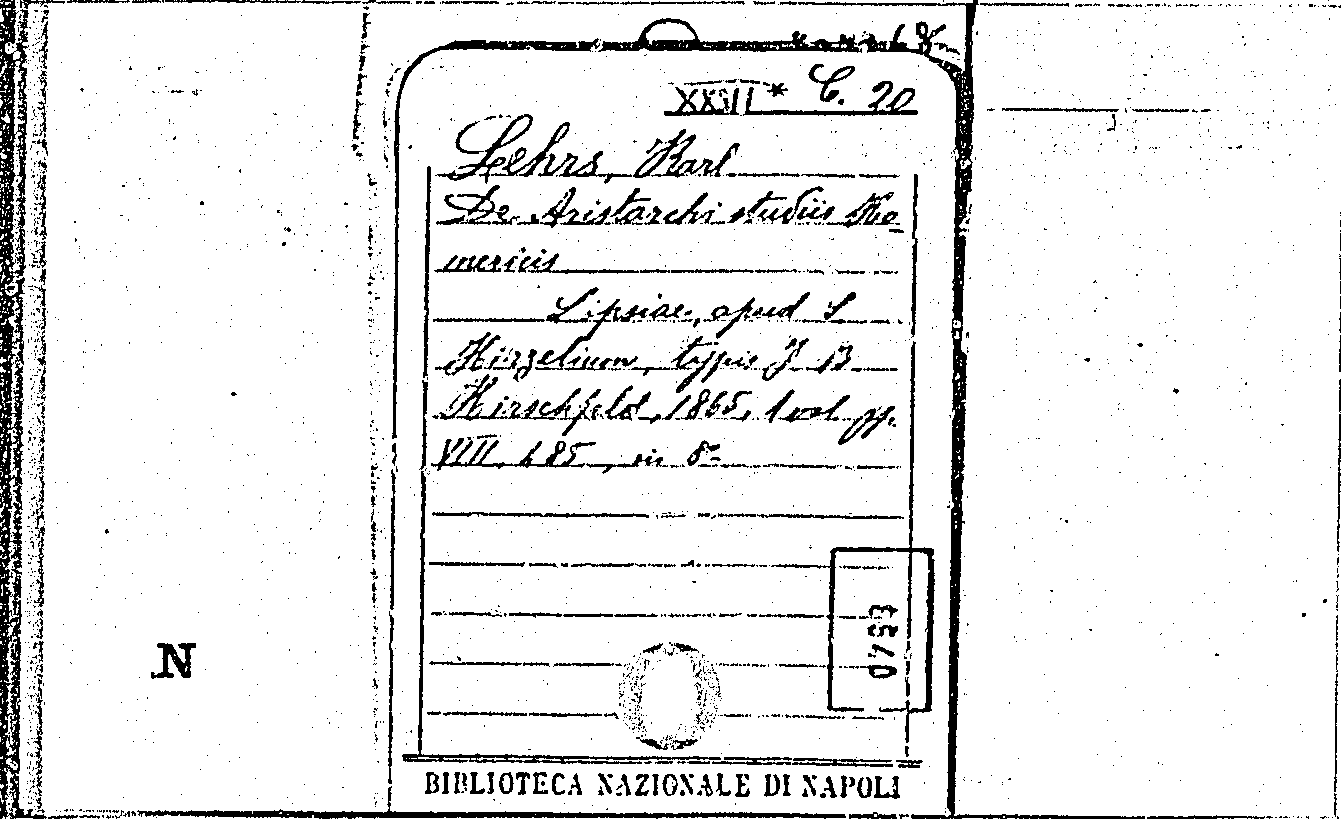 XXVII * C. 20
Lehrs, Karl
De Aristarchi studiis Ho
mericis
Lipsiae, apud S
Hirzelium, typis J B
Hirschfeld, 1865, 1 vol pp.
VIII, 485, in 8-
0793
N
BIBLIOTECA NAZIONALE DI NAPOLI